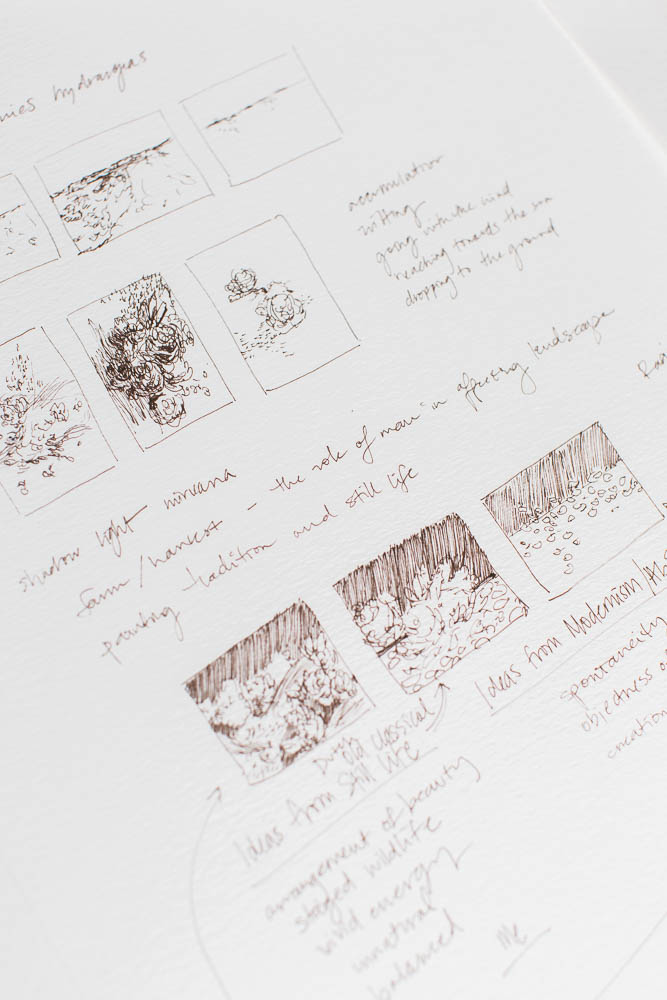 hydrangeas
accumulation
wilting
going with the wind
reaching towards the sun
dropping to the ground
shadow light nirvana
farm / harvest - the role of man in affecting landscape
painting tradition and still life
Ideas from Modernism /
spontaneity
objectness
creation
Dutch
old classical
Ideas from Still life
arrangement of beauty
staged wildlife
wind energy
unnatural
balanced
Me